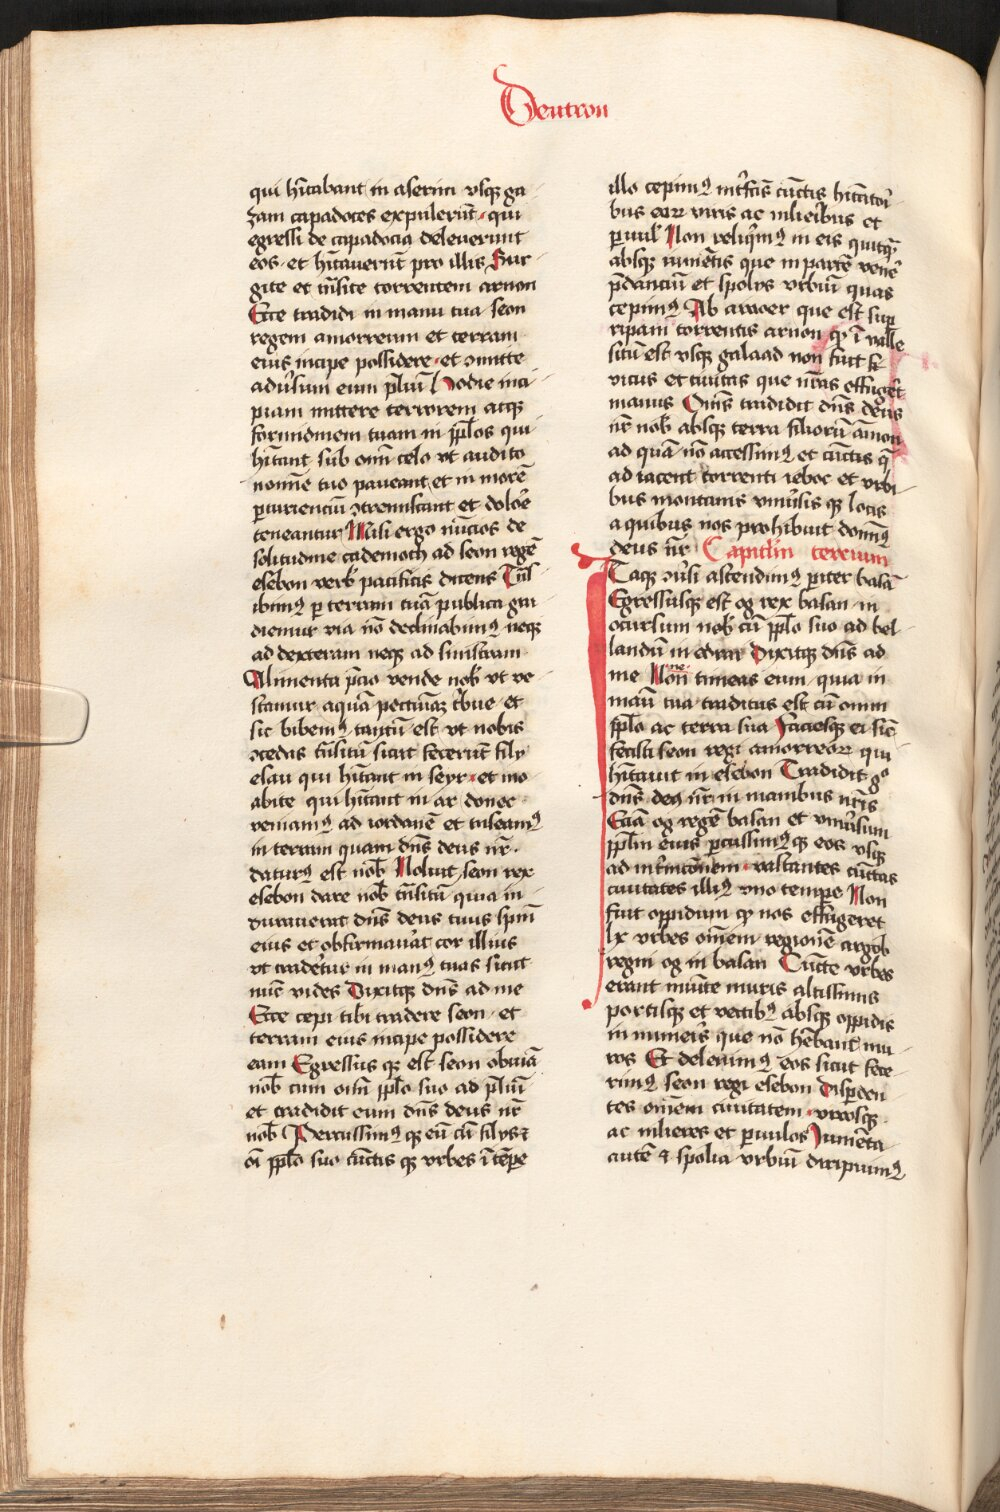 Deutron
qui hitabant in aserim vsq ga
zam capadoces expulerūt · qui
egressi de capadocia deleuerunt
eos · et hitauerūt pro illis Sur
gite et tnsite torrentem arnon
Ecce tradidi in manu tua seon
regem amorreum et terram
eius incipe possidere · et ɔmitte
adūsum eum pliū Hodie inci
piam mittere terrorem atq
formidinem tuam in pplos qui
hitant sub omī celo vt audito
nomīe tuo paueant et in morē
pturienciū ɔtremiscant et dolōe
teneantur Misi ergo nūcios de
solitudine cademoth ad seon regē
esebon verbꝭ pacificis dicens Tns
ibimꝰ p terram tuā publica gra
diemur via nō declinabimꝰ neqꝫ
ad dexteram neqꝫ ad sinistram
Alimenta pcio vende nob vt ve
scamur aquā pecunia tbue · et
sic bibemꝰ tantū est vt nobis
ɔcedas tnsitū sicut fecerūt filÿ
esau qui hitant in seyr · et mo
abite qui hitant in ar donec
veniamꝰ ad iordanē et tnseamꝰ
in terram quam dns deus nr
daturꝰ est nob Noluit seon rex
esebon dare nob tnsitū quia in
durauerat dns deus tuus spm
eius et obfirmauat cor illius
vt tradetur in manꝰ tuas sicut
nūc vides Dixitqꝫ dns ad me
Ecce cepi tibi tradere seon · et
terram eius incipe possidere
eam Egressus qꝫ est seon obuiā
nob cum omī pplo suo ad pliū
et tradidit eum dns deus nr
nob Percussimꝰ qꝫ eū cū filÿs ⁊
oī pplo suo cūctis qꝫ vrbes ī tēpe
illo cepimꝰ intfcis cūctis hitatoi
bus eaꝝ viris ac mlieibus et
puul Non reliqimꝰ in eis quitqꝫ
absqꝫ iumētis que in partē venē
pdanciū et spolÿs vrbiū quas
cepimꝰ Ab aroer que est sup
ripam torrentis arnon qꝫ ī valle
situ est vsqꝫ galaad non fuit
vicus et ciuitas que nras effuget
manus Omīs tradidit dns deus
nr nob absqꝫ terra filiorū āmon
ad quā nō accessimꝰ et cūctis q̄
ad iacent torrenti ieboc et vrbi
bus montanis vniūsis qꝫ locis
a quibus nos prohibuit domnꝰ
deus nr Capitlm tercium
Itaqꝫ ɔūsi ascendimꝰ piter basā
Egressusqꝫ est og rex basan in
occursum nob cū pplo suo ad bel
landū in edrai Dixitqꝫ dns ad
me Non ne timeas eum · quia in
manū tua traditus est cū omni
pplo ac terra sua Faciesqꝫ ei sic
fecisti seon regi amorreoꝝ qui
hitauit in esebon Tradidit gͦ
dns deꝰ nr in manibus nris
Eciā og regē basan et vniūsum
pplm eius pcussimꝰ qꝫ eos vsqꝫ
ad intnicōnem · vastantes cūctas
ciuitates illiꝰ vno tempe Non
fuit oppidum qꝫ nos effugeret
lx vrbes omēm regionē argob
regni og in basan Cūcte vrbes
erant mūite muris altissimis
portisqꝫ et vectibꝰ absqꝫ oppidis
in numeis que nō hēbant mu
ros Et deleuimꝰ eos sicut fece
rimꝰ seon regi esebon Disperden
tes omēm ciuitatem · virosqꝫ
ac mlieres et puulos Iumēta
autē ⁊ spolia vrbiū diripuimꝰ